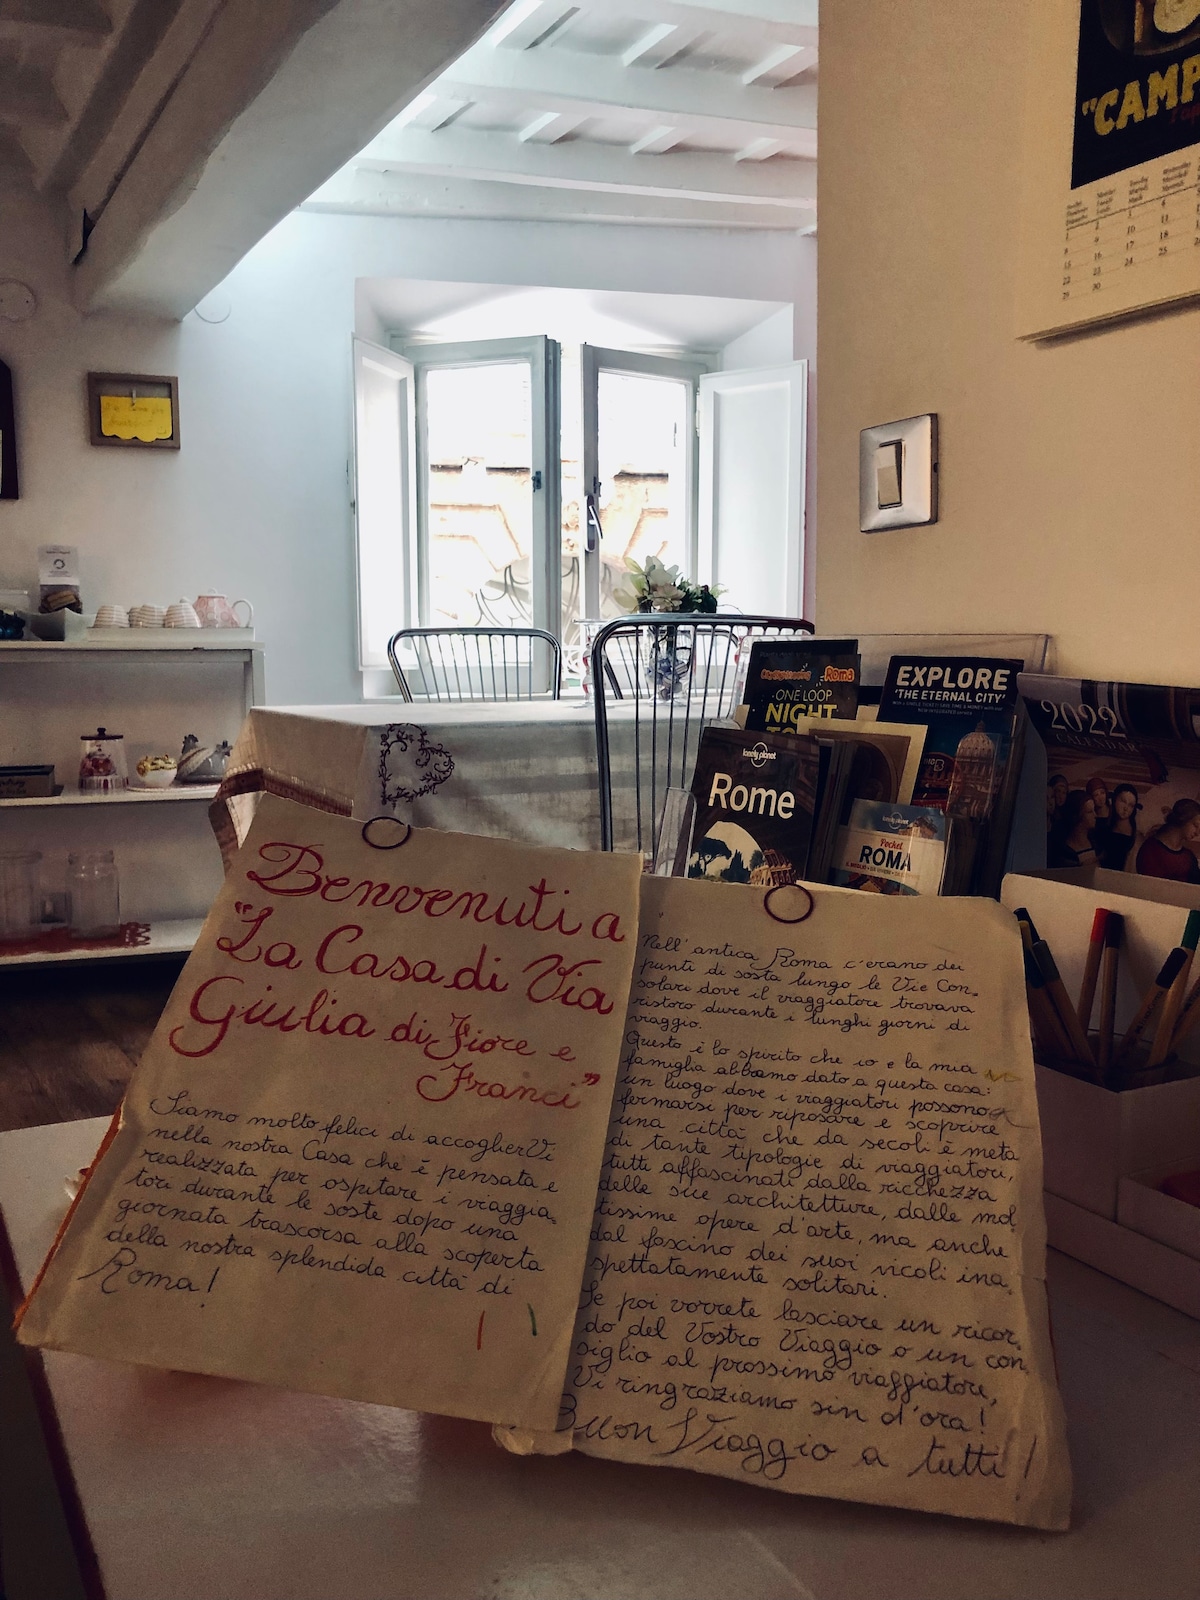 "CAMP
EXPLORE
'THE ETERNAL CITY'
Roma
ONE LOOP
NIGHT
TO
lonely planet
Rome
lonely planet
Pocket
ROMA
2022
CALENDAR
Benvenuti a
"La Casa di Via
Giulia di Fiore e
Franci"
Siamo molto felici di accoglierVi
nella nostra Casa che è pensata e
realizzata per ospitare i viaggia-
tori durante le soste dopo una
giornata trascorsa alla scoperta
della nostra splendida città di
Roma!
Nell'antica Roma c'erano dei
punti di sosta lungo le Vie Con-
solari dove il viaggiatore trovava
ristoro durante i lunghi giorni di
viaggio.
Questo è lo spirito che io e la mia
famiglia abbiamo dato a questa casa:
un luogo dove i viaggiatori possono
fermarsi per riposare e scoprire
una città che da secoli è meta
di tante tipologie di viaggiatori,
tutti affascinati dalla ricchezza
delle sue architetture, dalle mol
tissime opere d'arte, ma anche
dal fascino dei suoi vicoli ina-
spettatamente solitari.
Se poi vorrete lasciare un ricor-
do del Vostro Viaggio o un con
siglio al prossimo viaggiatore,
Vi ringraziamo sin d'ora!
Buon Viaggio a tutti!